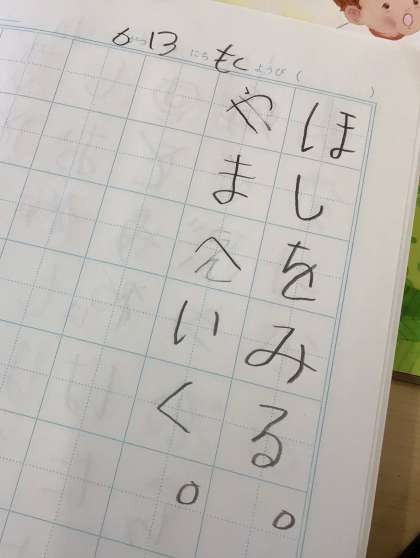 6がつ13にち もくようび( )
ほしをみる。
やまへいく。